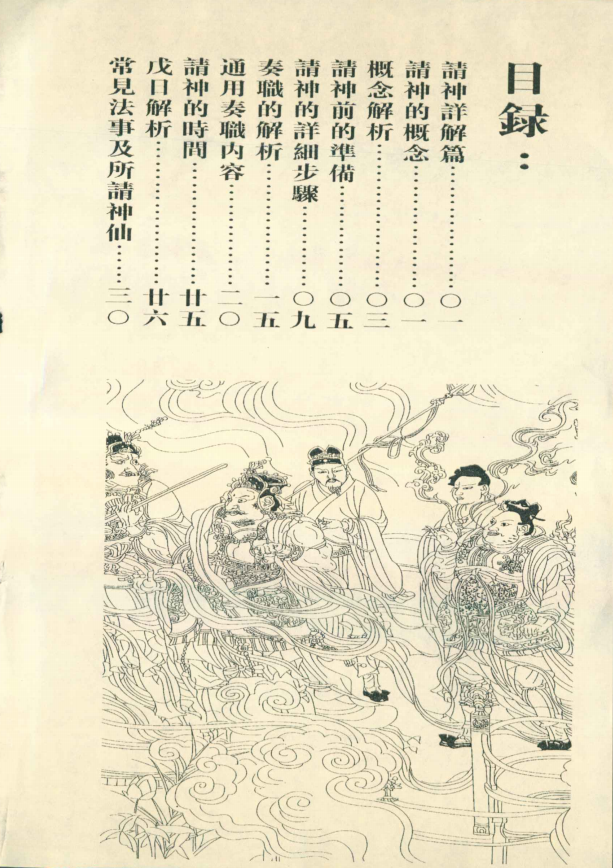 目録：
請神詳解篇……………………〇一
請神的概念……………………〇一
概念解析……………………〇三
請神前的準備……………………〇五
請神的詳細步驟……………〇九
奏職的解析……………………一五
通用奏職内容……………………二〇
請神的時間……………………廿五
戊日解析……………………廿六
常見法事及所請神仙……三〇